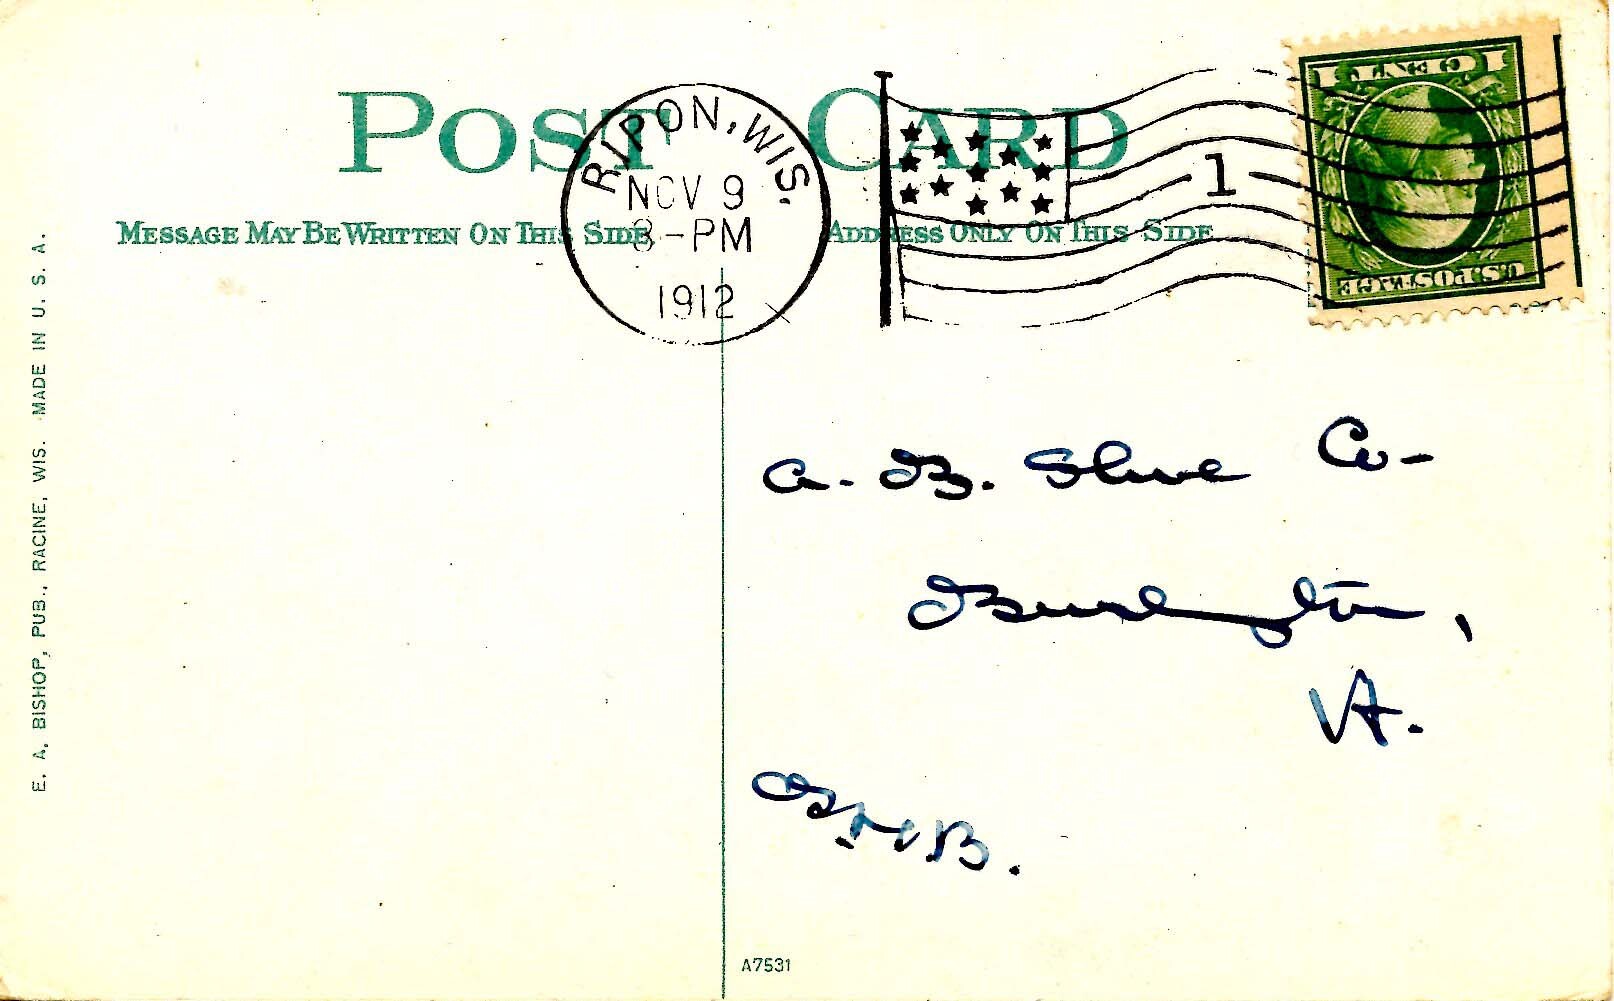 POST CARD
RIPON, WIS.
NOV 9
8-PM
1912
1
1 CENT 1
U.S. POSTAGE
MESSAGE MAY BE WRITTEN ON THIS SIDE
ADDRESS ONLY ON THIS SIDE
E. A. BISHOP, PUB., RACINE, WIS. MADE IN U. S. A.
A. B. Co-
Burlington,
Vt.
A7531